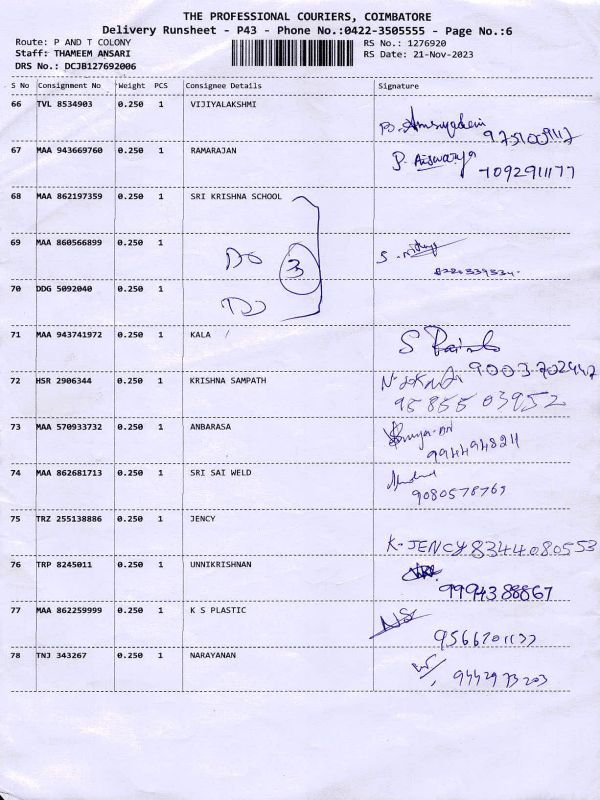 THE PROFESSIONAL COURIERS, COIMBATORE
Delivery Runsheet - P43 - Phone No.:0422-3505555 - Page No.:6
Route: P AND T COLONY RS No.: 1276920
Staff: THAMEEM ANSARI RS Date: 21-Nov-2023
DRS No.: DCJB127692006
S No Consignment No Weight PCS Consignee Details Signature
66 TVL 8534903 0.250 1 VIJIYALAKSHMI
67 MAA 943669760 0.250 1 RAMARAJAN P. Aiswarya
68 MAA 862197359 0.250 1 SRI KRISHNA SCHOOL
69 MAA 860566899 0.250 1 DO 3 S.
70 DDG 5092040 0.250 1
71 MAA 943741972 0.250 1 KALA / S
9003702442
72 HSR 2906344 0.250 1 KRISHNA SAMPATH
95855 03952
73 MAA 570933732 0.250 1 ANBARASA
9944948211
74 MAA 862681713 0.250 1 SRI SAI WELD
9080578769
75 TRZ 255138886 0.250 1 JENCY
K-JENCY 8344080553
76 TRP 8245011 0.250 1 UNNIKRISHNAN
9994388867
77 MAA 862259999 0.250 1 K S PLASTIC NS
9566201177
78 TNJ 343267 0.250 1 NARAYANAN
9442973203